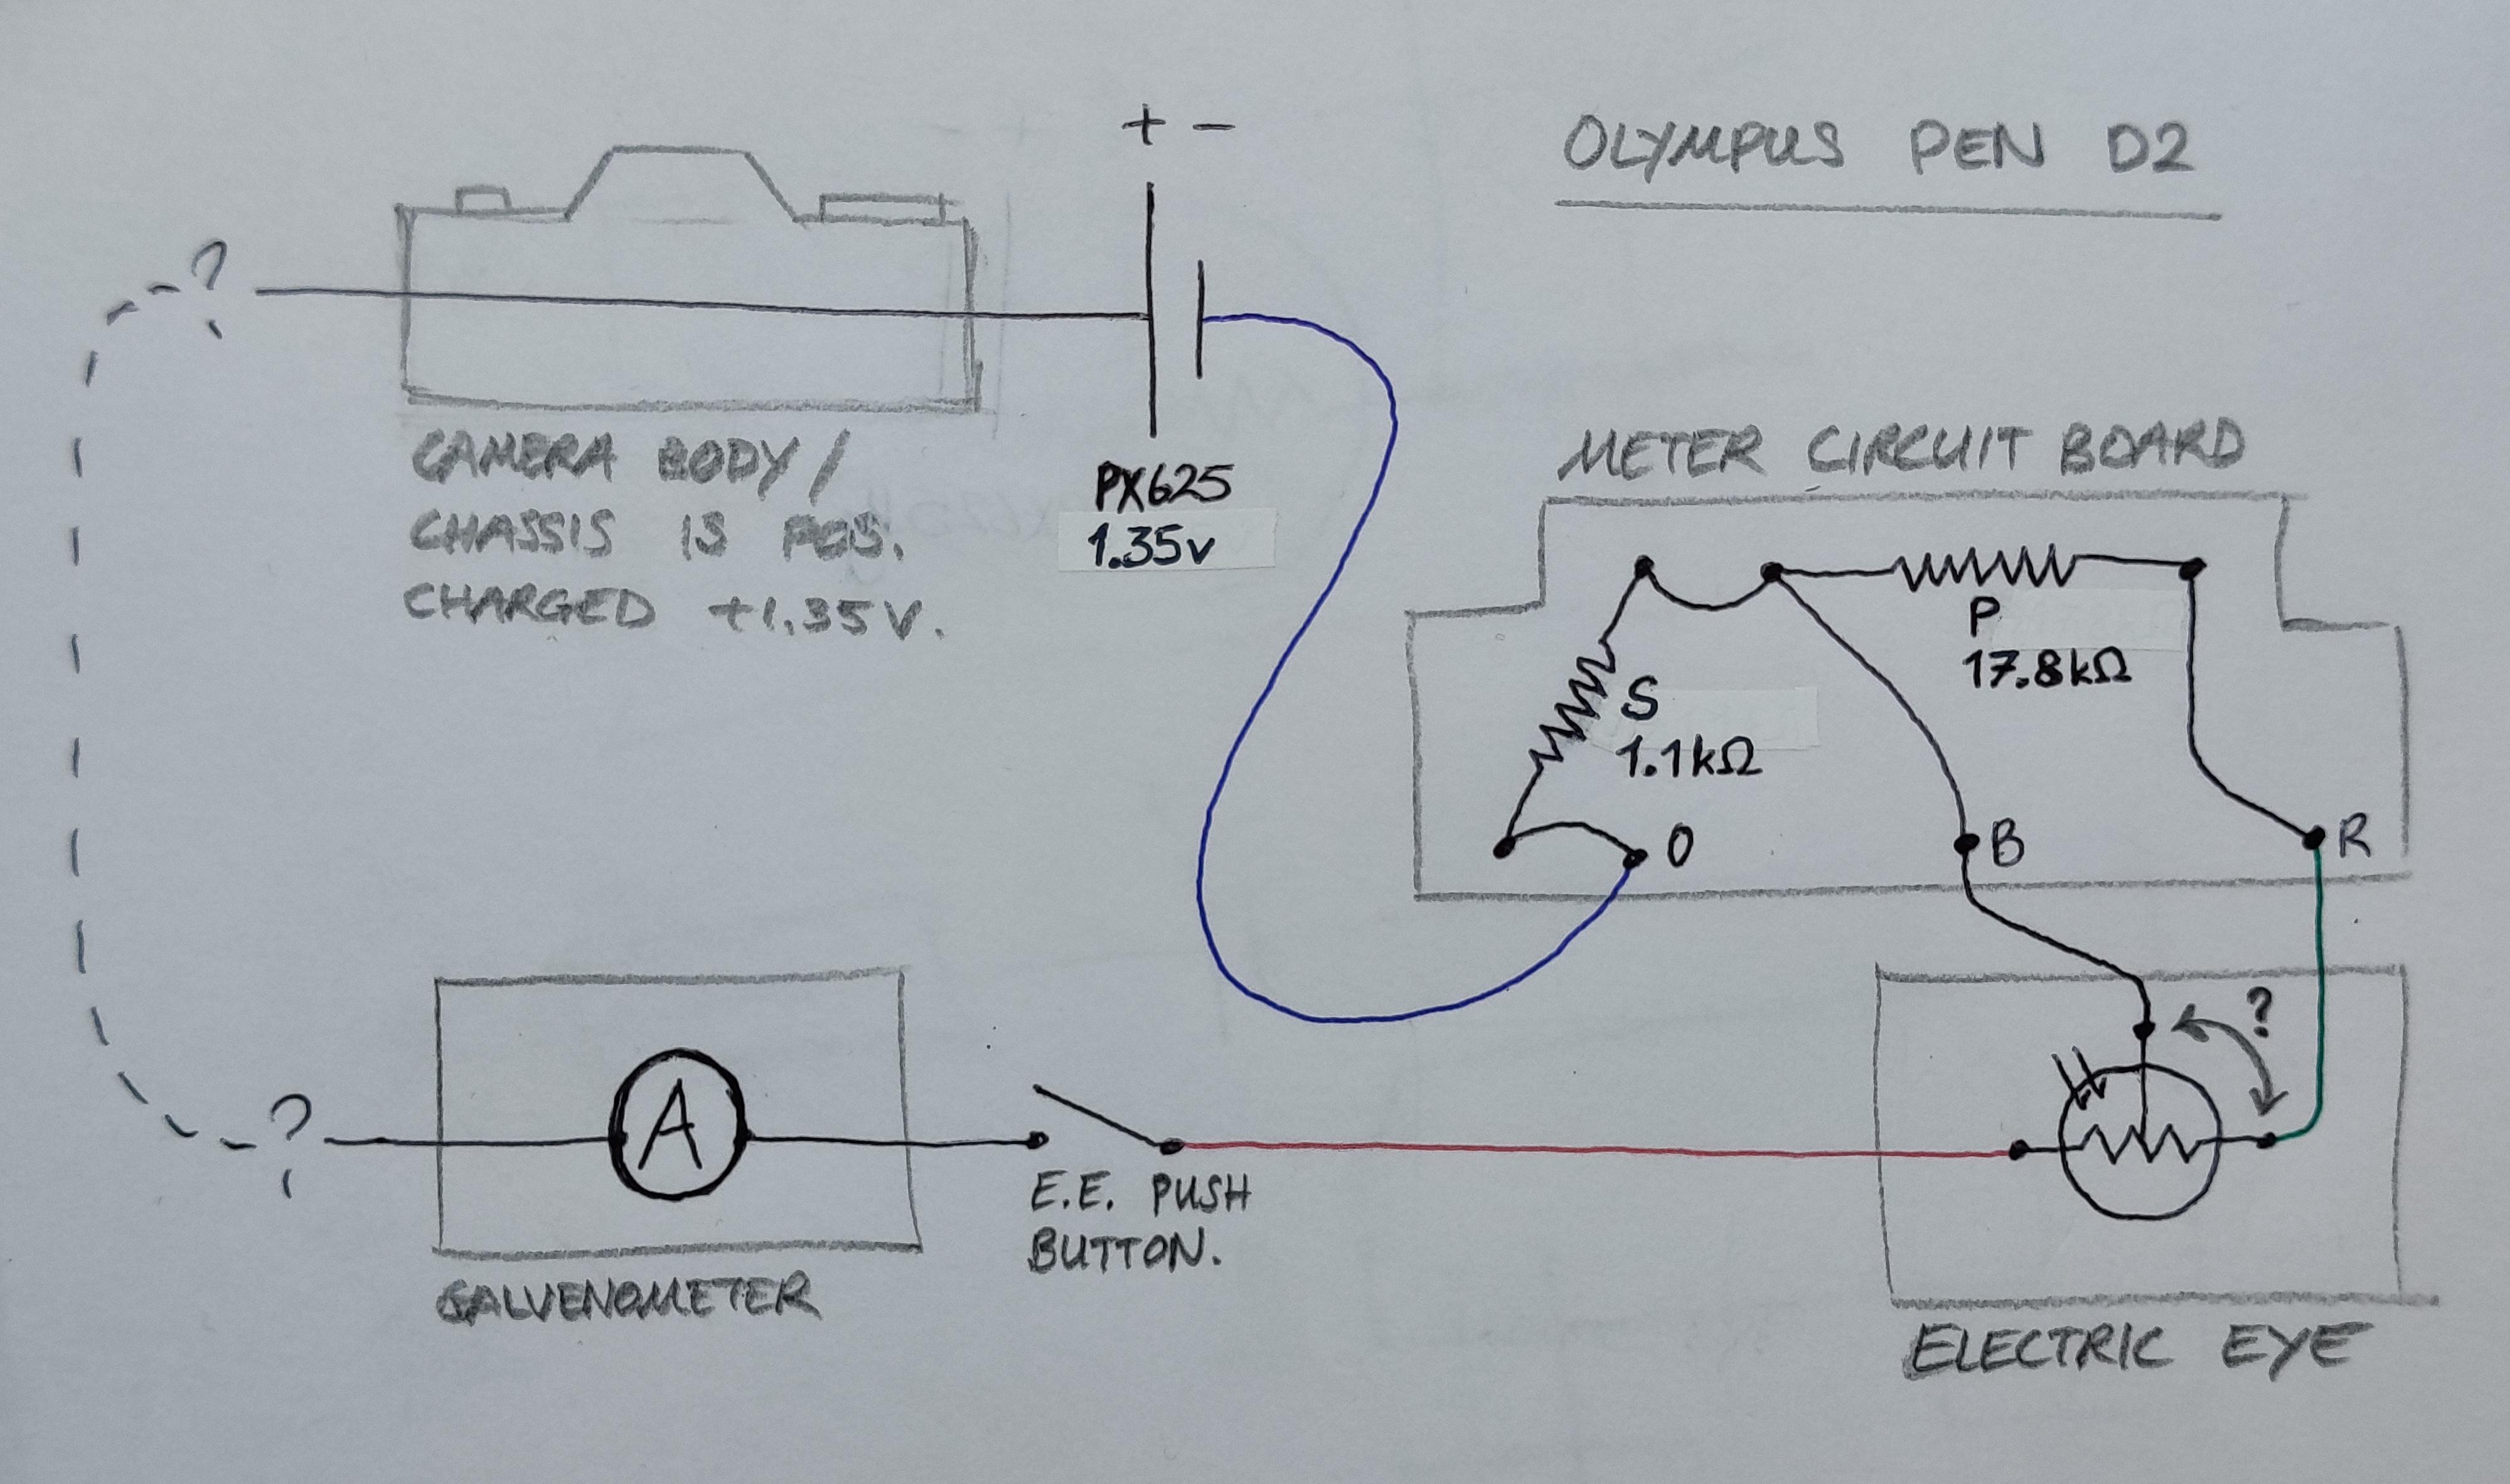 + −
OLYMPUS PEN D2
?
CAMERA BODY/
CHASSIS IS POS.
CHARGED +1.35V.
PX625
1.35v
METER CIRCUIT BOARD
P
17.8kΩ
S
1.1kΩ
O
B
R
?
?
A
E.E. PUSH
BUTTON.
GALVENOMETER
ELECTRIC EYE